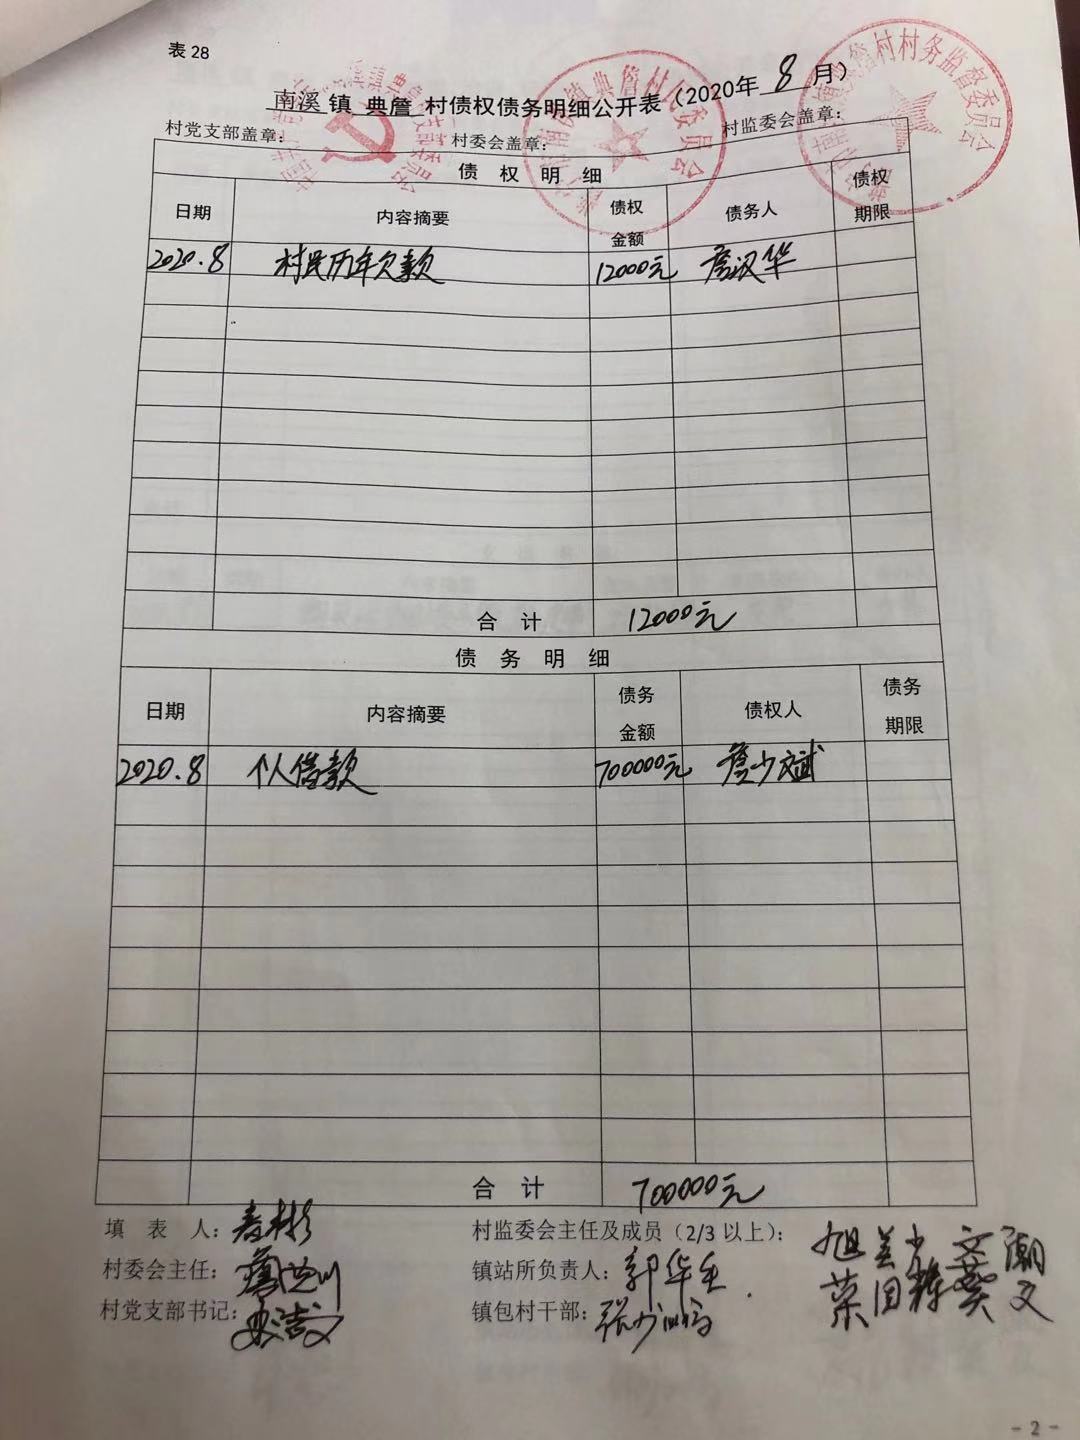 表 28
南溪 镇 典詹 村债权债务明细公开表（2020年 8 月）
村党支部盖章： 村委会盖章： 村监委会盖章：
债 权 明 细
日期 内容摘要 债权金额 债务人 债权期限
2020.8 村民历年欠款 12000元 詹汉华
合 计 12000元
债 务 明 细
日期 内容摘要 债务金额 债权人 债务期限
2020.8 个人借款 700000元 詹少斌
合 计 700000元
填 表 人： 村监委会主任及成员（2/3 以上）：
村委会主任： 镇站所负责人：
村党支部书记： 镇包村干部：
- 2 -